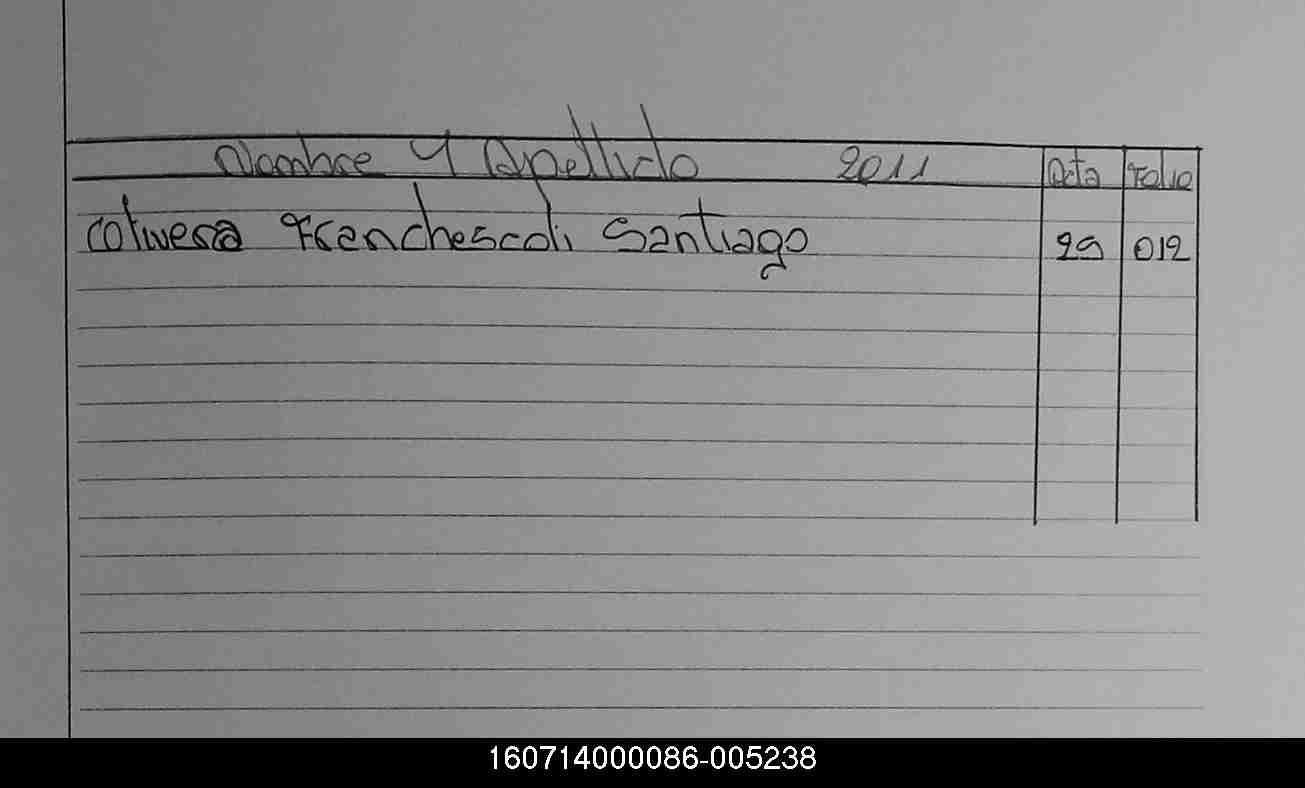 Nombre Y Apellido 2011 Acta Folio
Frenchescoli Santiago 29 012
160714000086-005238